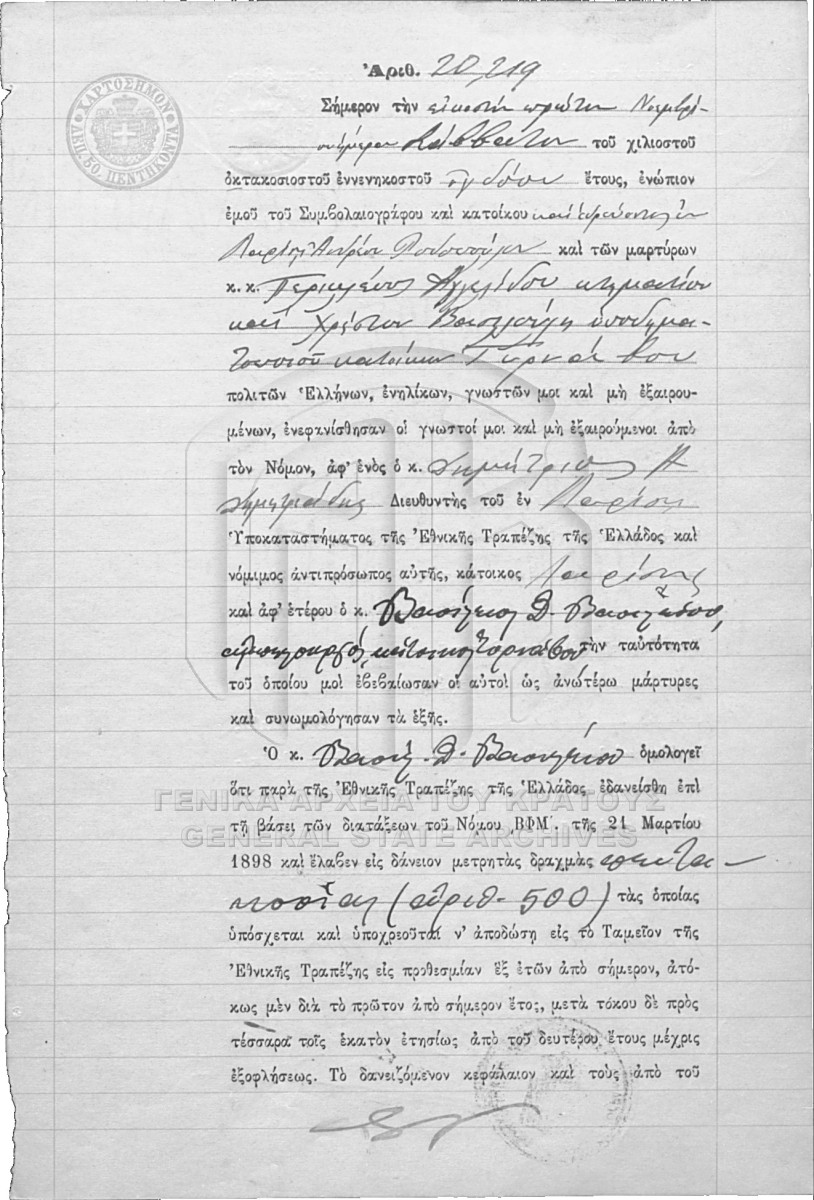 ΧΑΡΤΟΣΗΜΟΝ
ΛΕΠ. 50. ΠΕΝΤΗΚΟΝΤΑ
Ἀριθ. 20,219
Σήμερον τὴν εἰκοστὴν πρώτην Νοεμβρί-
Σάββατον τοῦ χιλιοστοῦ
ὀκτακοσιοστοῦ ἐννενηκοστοῦ ὀγδόου ἔτους, ἐνώπιον
ἐμοῦ τοῦ Συμβολαιογράφου καὶ κατοίκου
Λαρίσῃ Ἀνδρέου Ροδοπούλου καὶ τῶν μαρτύρων
κ. κ. Περικλέους Ἀγγελίδου κτηματίου
καὶ Χρήστου Βασιλούλη ὑποδημα-
τοποιοῦ κατοίκων Τυρνάβου
πολιτῶν Ἑλλήνων, ἐνηλίκων, γνωστῶν μοι καὶ μὴ ἐξαιρου-
μένων, ἐνεφανίσθησαν οἱ γνωστοί μοι καὶ μὴ ἐξαιρούμενοι ἀπὸ
τὸν Νόμον, ἀφ' ἑνὸς ὁ κ. Δημήτριος
Δημητριάδης Διευθυντὴς τοῦ ἐν Λαρίσῃ
Ὑποκαταστήματος τῆς Ἐθνικῆς Τραπέζης τῆς Ἑλλάδος καὶ
νόμιμος ἀντιπρόσωπος αὐτῆς, κάτοικος Λαρίσης
καὶ ἀφ' ἑτέρου ὁ κ. Βασίλειος Δ.
κάτοικος Τυρνάβου τὴν ταυτότητα
τοῦ ὁποίου μοὶ ἐβεβαίωσαν οἱ αὐτοὶ ὡς ἀνωτέρω μάρτυρες
καὶ συνωμολόγησαν τὰ ἑξῆς.
Ὁ κ. Βασίλ. Δ. Βασιλείου ὁμολογεῖ
ὅτι παρὰ τῆς Ἐθνικῆς Τραπέζης τῆς Ἑλλάδος ἐδανείσθη ἐπὶ
τῇ βάσει τῶν διατάξεων τοῦ Νόμου ͵ΒΦΜ΄. τῆς 21 Μαρτίου
1898 καὶ ἔλαβεν εἰς δάνειον μετρητὰς δραχμὰς πεντα-
κοσίας (ἀριθ. 500) τὰς ὁποίας
ὑπόσχεται καὶ ὑποχρεοῦται ν' ἀποδώσῃ εἰς τὸ Ταμεῖον τῆς
Ἐθνικῆς Τραπέζης εἰς προθεσμίαν ἓξ ἐτῶν ἀπὸ σήμερον, ἀτό-
κως μὲν διὰ τὸ πρῶτον ἀπὸ σήμερον ἔτος, μετὰ τόκου δὲ πρὸς
τέσσαρα τοῖς ἑκατὸν ἐτησίως ἀπὸ τοῦ δευτέρου ἔτους μέχρις
ἐξοφλήσεως. Τὸ δανειζόμενον κεφάλαιον καὶ τοὺς ἀπὸ τοῦ
ΓΕΝΙΚΑ ΑΡΧΕΙΑ ΤΟΥ ΚΡΑΤΟΥΣ
GENERAL STATE ARCHIVES